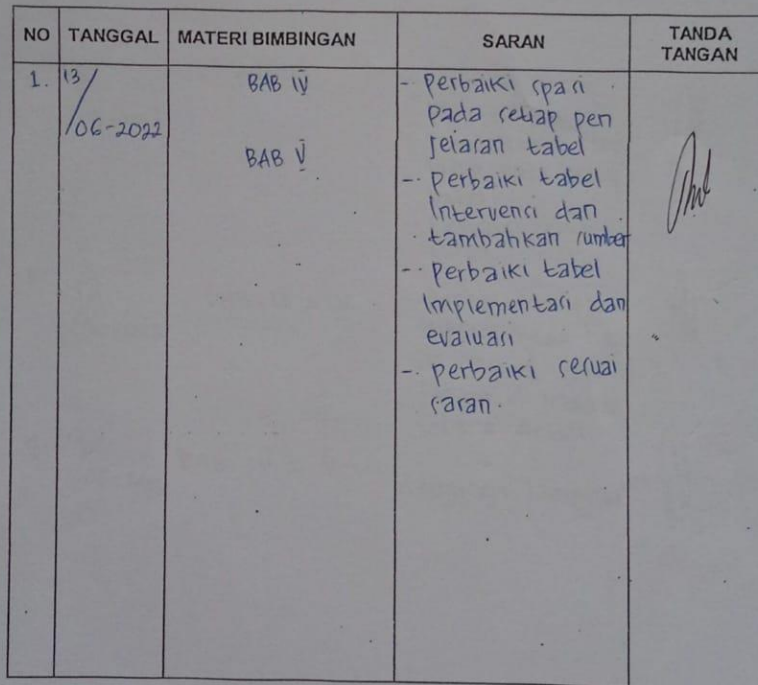 NO TANGGAL MATERI BIMBINGAN SARAN TANDA TANGAN
1. 13/06-2022 BAB IV - Perbaiki spasi
pada setiap pen
jelasan tabel
BAB V
- Perbaiki tabel
Intervensi dan
tambahkan sumber
- Perbaiki tabel
Implementasi dan
evaluasi
- perbaiki sesuai
saran.